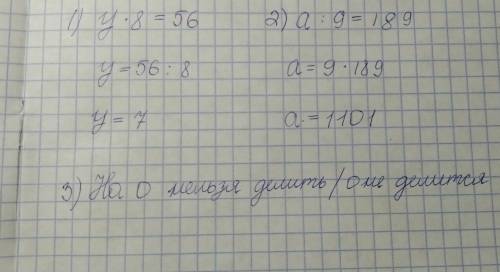 1) y · 8 = 56 2) a : 9 = 189
y = 56 : 8 a = 9 · 189
y = 7 a = 1101
3) На 0 нельзя делить / 0 не делится